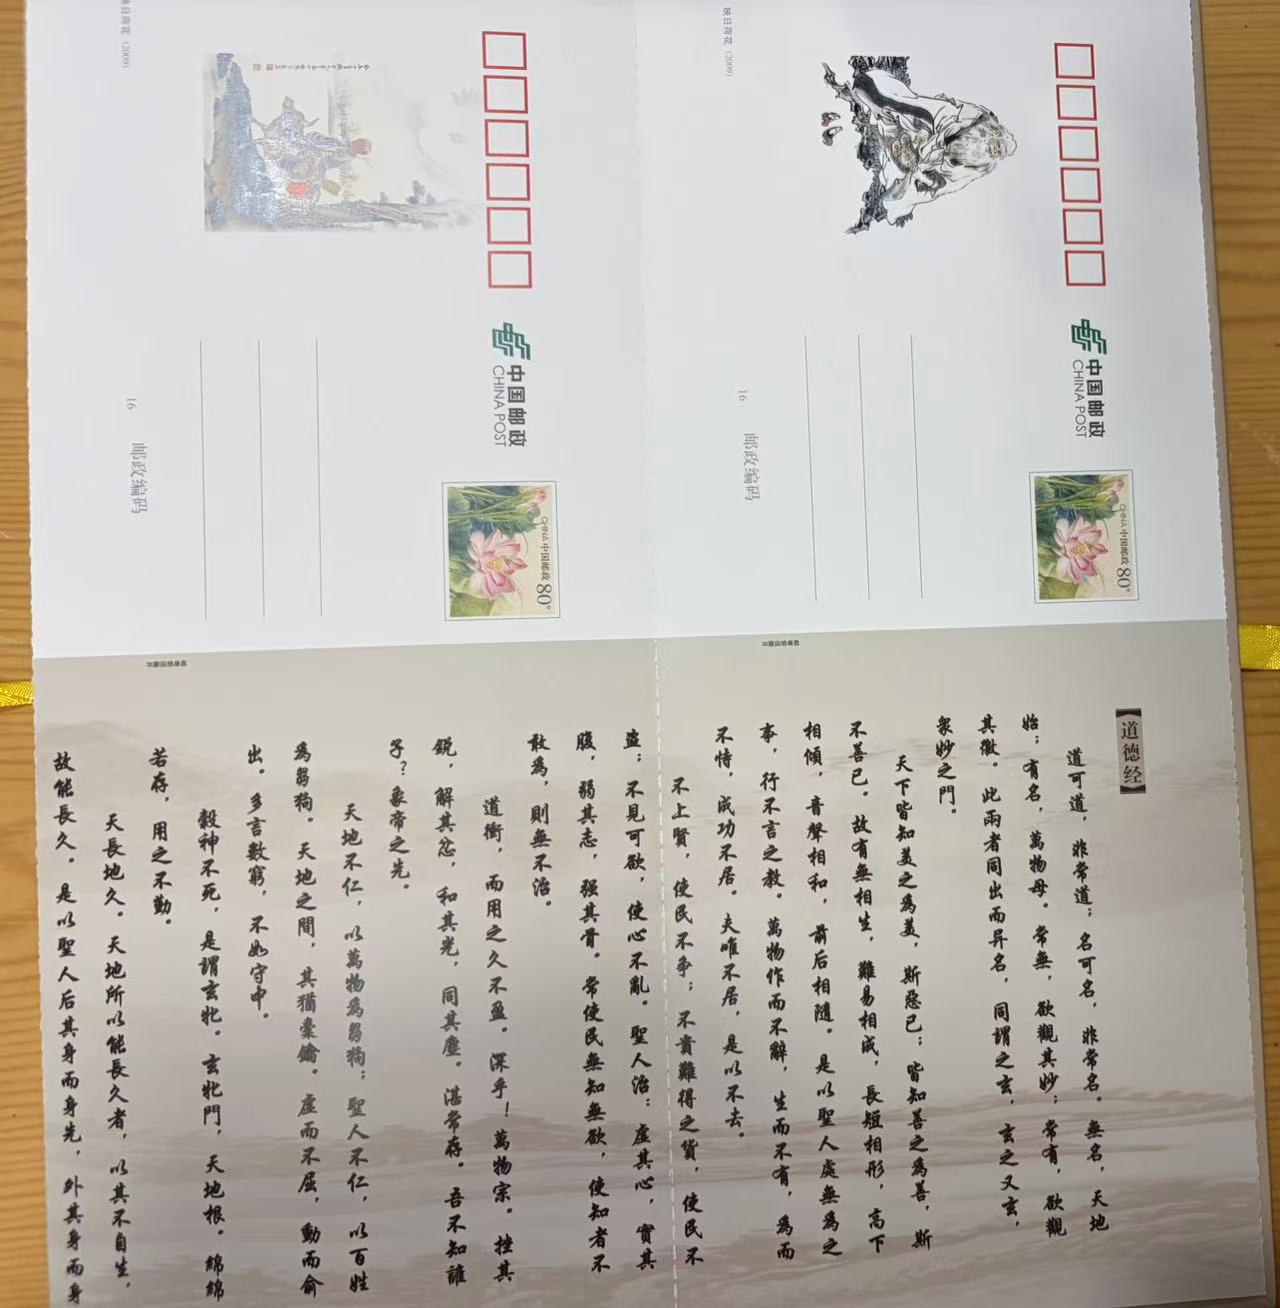 映日荷花 (2009)
中国邮政
CHINA POST
CHINA 中国邮政 80分
16
邮政编码
映日荷花 (2009)
中国邮政
CHINA POST
CHINA 中国邮政 80分
16
邮政编码
道德经
道可道，非常道；名可名，非常名。無名，天地
始；有名，萬物母。常無，欲觀其妙；常有，欲觀
其徼。此兩者同出而异名，同謂之玄，玄之又玄，
衆妙之門。
天下皆知美之為美，斯惡已；皆知善之為善，斯
不善已。故有無相生，難易相成，長短相形，高下
相傾，音聲相和，前后相隨。是以聖人處無為之
事，行不言之教。萬物作而不辭，生而不有，為而
不恃，成功不居。夫唯不居，是以不去。
不上賢，使民不争；不貴難得之貨，使民不
盗；不見可欲，使心不亂。聖人治：虛其心，實其
腹，弱其志，强其骨。常使民無知無欲，使知者不
敢為，則無不治。
道衝，而用之久不盈。深乎！萬物宗。挫其
銳，解其忿，和其光，同其塵。湛常存。吾不知誰
子？象帝之先。
天地不仁，以萬物為芻狗；聖人不仁，以百姓
為芻狗。天地之間，其猶橐籥。虛而不屈，動而俞
出。多言數窮，不如守中。
穀神不死，是謂玄牝。玄牝門，天地根。綿綿
若存，用之不勤。
天長地久。天地所以能長久者，以其不自生，
故能長久。是以聖人后其身而身先，外其身而身